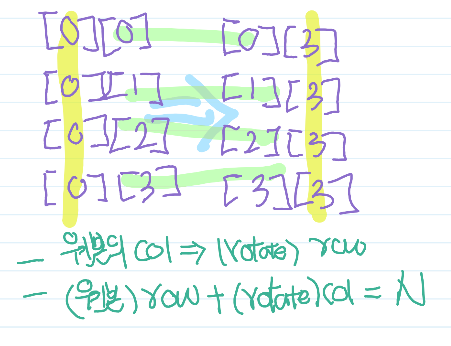 [0][0] [0][3]
[0][1] [1][3]
[0][2] [2][3]
[0][3] [3][3]
- 원본의 col ⇒ (rotate) row
- (원본) row + (rotate) col = N